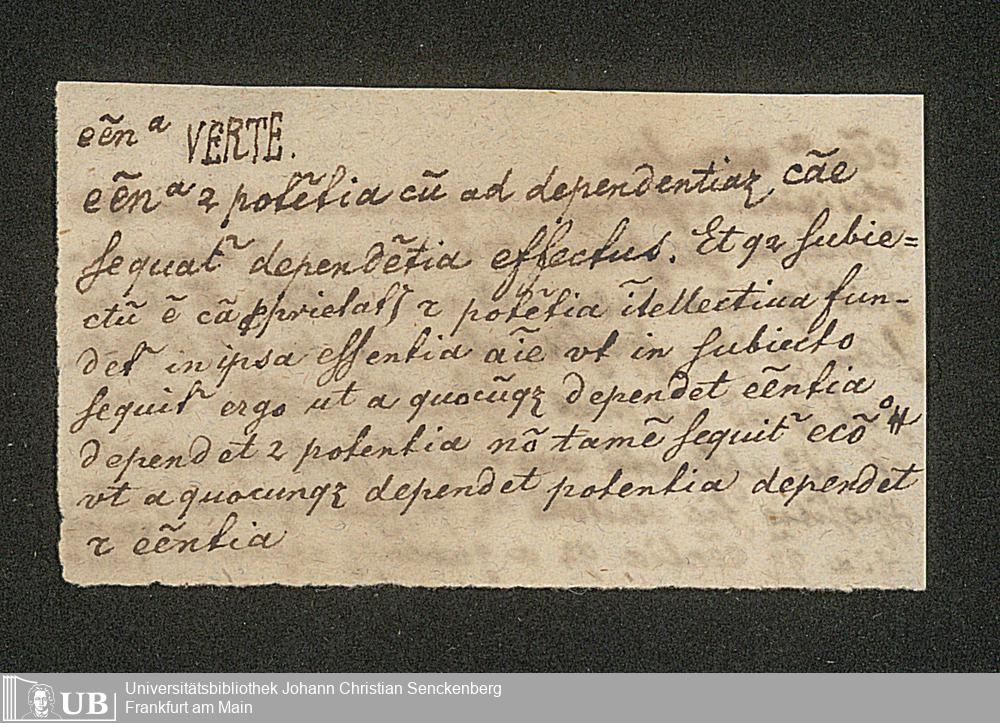 eēnᵃ VERTE.
eēnᵃ ⁊ potētia cū ad dependentiaꝫ cāe
sequat᷑ dependētia effectus. Et qꝛ subie=
ctū ē cā ꝓprietatꝭ ⁊ potētia ītellectiua fun-
det᷑ in ipsa essentia aīe vt in subiecto
sequit᷑ ergo ut a quocūqꝫ dependet eēntia
dependet ⁊ potentia nō tamē sequit᷑ ecōᵒ
vt a quocunqꝫ dependet potentia dependet
⁊ eēntia
UB
Universitätsbibliothek Johann Christian Senckenberg
Frankfurt am Main